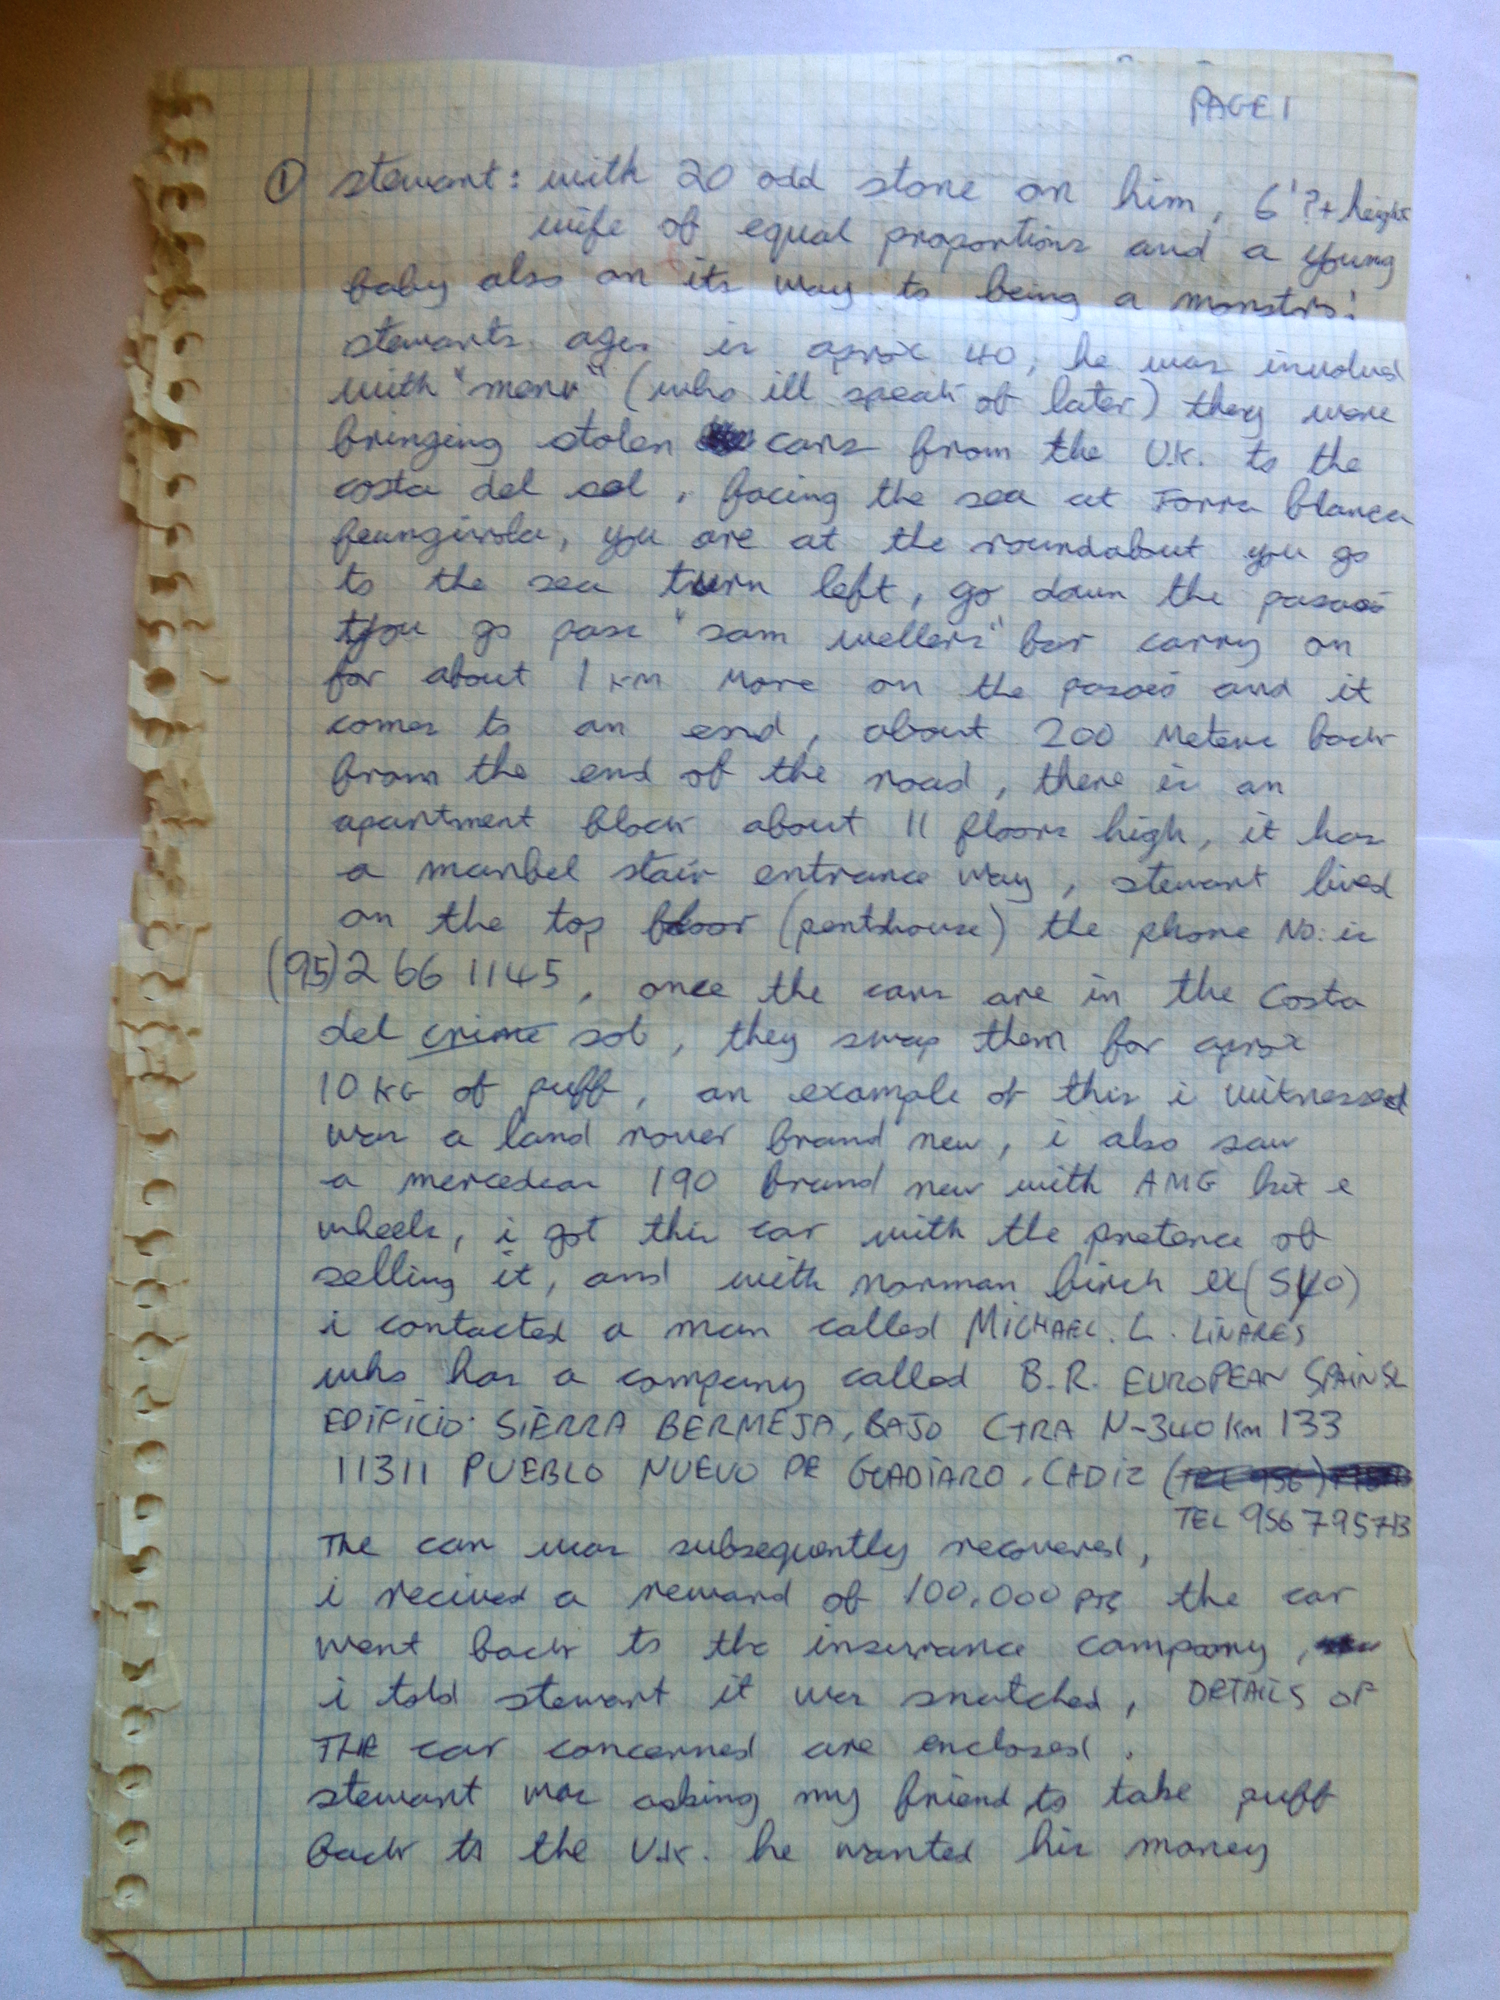 PAGE 1
① stewart: with 20 odd stone on him, 6'?+ height
wife of equal proportions and a young
baby also on its way to being a monster!
stewarts ages is aprox 40, he was involved
with "merv" (who ill speak of later) they were
bringing stolen cars from the U.K. to the
costa del sol, facing the sea at Torra blanca
feungirola, you are at the roundabout you go
to the sea turn left, go down the paseo
you go pass "sam wellers" bar carry on
for about 1 KM More on the paseo and it
comes to an end, about 200 Meters back
from the end of the road, there is an
apartment block about 11 floors high, it has
a marbel stair entrance way, stewart lived
on the top floor (penthouse) the phone No: is
(95)2 66 1145, once the cars are in the Costa
del crime sol, they swap them for aprox
10 KG of puff, an example of this i witnessed
was a land rover brand new, i also saw
a mercedeas 190 brand new with AMG kit e
wheels, i got this car with the pretence of
selling it, and with norman birch ex(SYO)
i contacted a man called MICHAEL. L. LINARES
who has a company called B.R. EUROPEAN SPAIN SL
EDIFICIO SIERRA BERMEJA, BAJO CTRA N-340 Km 133
11311 PUEBLO NUEVO DE GUADIARO. CADIZ (TEL 956)
TEL 956 795713
THE car was subsequently recovered,
i recived a reward of 100,000 pts the car
went back to the insurance company,
i told stewart it was snatched, DETAILS OF
THE car concerned are enclosed.
stewart was asking my friend to take puff
back to the U.K. he wanted his money